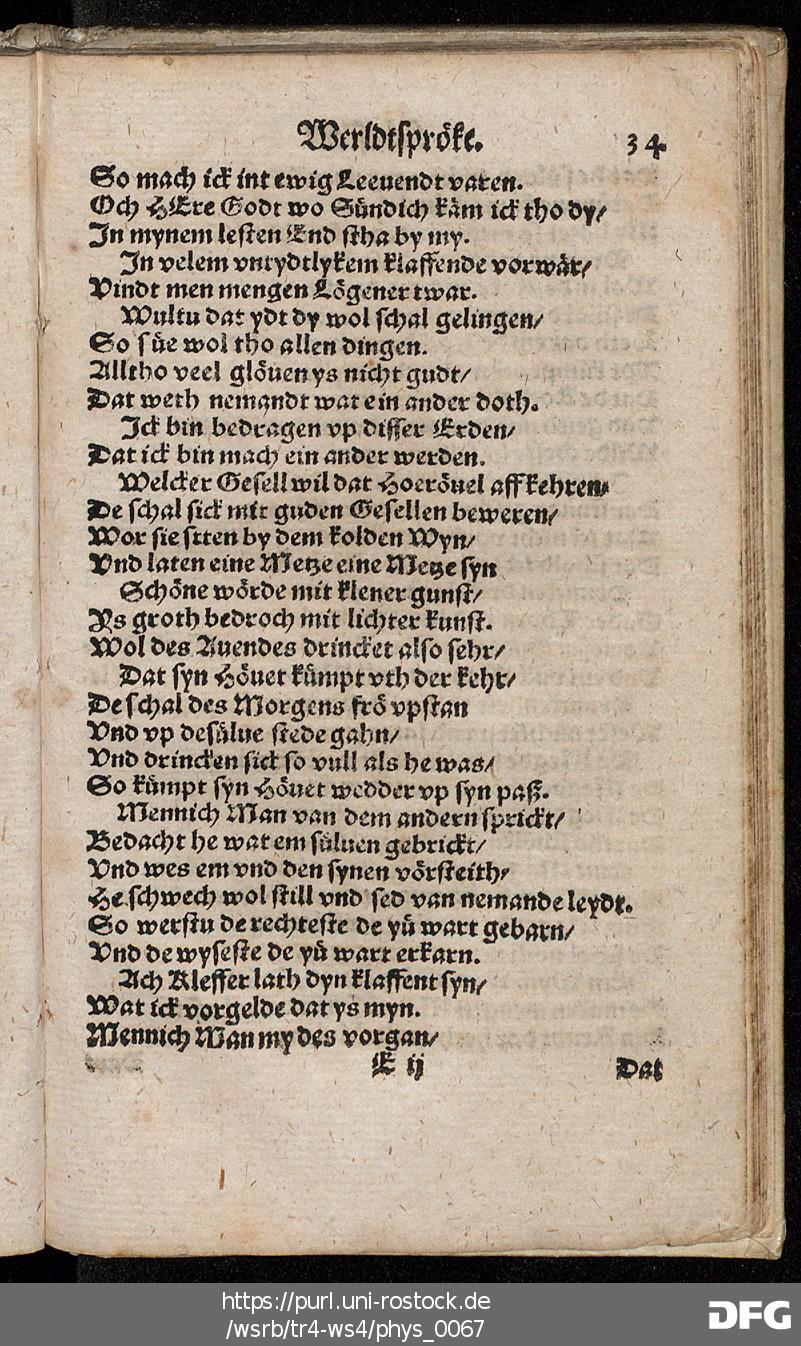 Werldtspröke. 34.
So mach ick int ewig Leeuendt varen.
Och HEre Godt wo Sündich käm ick tho dy/
In mynem lesten End stha by my.
In velem vntydtlykem klaffende vorwär/
Vindt men mengen Lögener twar.
Wultu dat ydt dy wol schal gelingen/
So süe wol tho allen dingen.
Alltho veel glöuen ys nicht gudt/
Dat weth nemandt wat ein ander doth.
Ick bin bedragen vp disser Erden/
Dat ick bin mach ein ander werden.
Welcker Gesell wil dat Hoeröuel aff kehren/
De schal sick mit guden Gesellen beweren/
Wor sie sitten by dem kolden Wyn/
Vnd laten eine Metze eine Metze syn
Schöne wörde mit klener gunst/
Ys groth bedroch mit lichter kunst.
Wol des Auendes drincket also sehr/
Dat syn Höuet kümpt vth der kehr/
De schal des Morgens frö vpstan
Vnd vp desülue stede gahn/
Vnd drincken sick so vull als he was/
So kümpt syn Höuet wedder vp syn paß.
Mennich Man van dem andern sprickt/
Bedacht he wat em süluen gebrickt/
Vnd wes em vnd den synen vörsteith/
He schwech wol still vnd sed van nemande leydt.
So werstu de rechteste de yü wart gebarn/
Vnd de wyseste de yü wart erkarn.
Ach Kleffer lath dyn klaffent syn/
Wat ick vorgelde dat ys myn.
Mennich Man my des vorgan/
E ij Dat
https://purl.uni-rostock.de
/wsrb/tr4-ws4/phys_0067
DFG